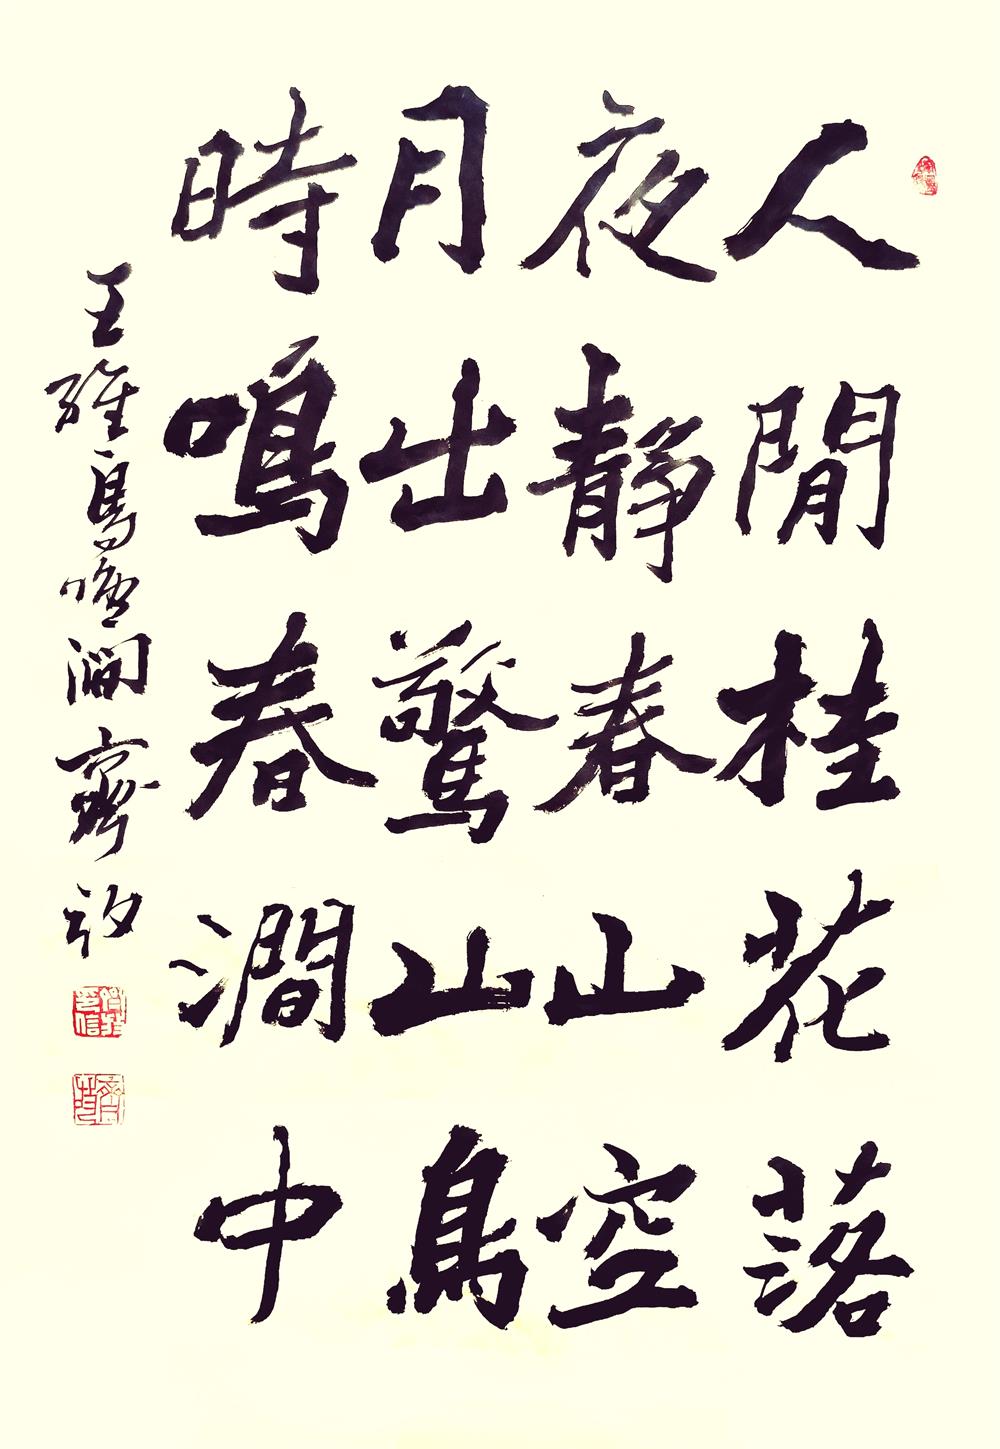 人閒桂花落
夜静春山空
月出驚山鳥
時鳴春澗中
王維鳥鳴澗